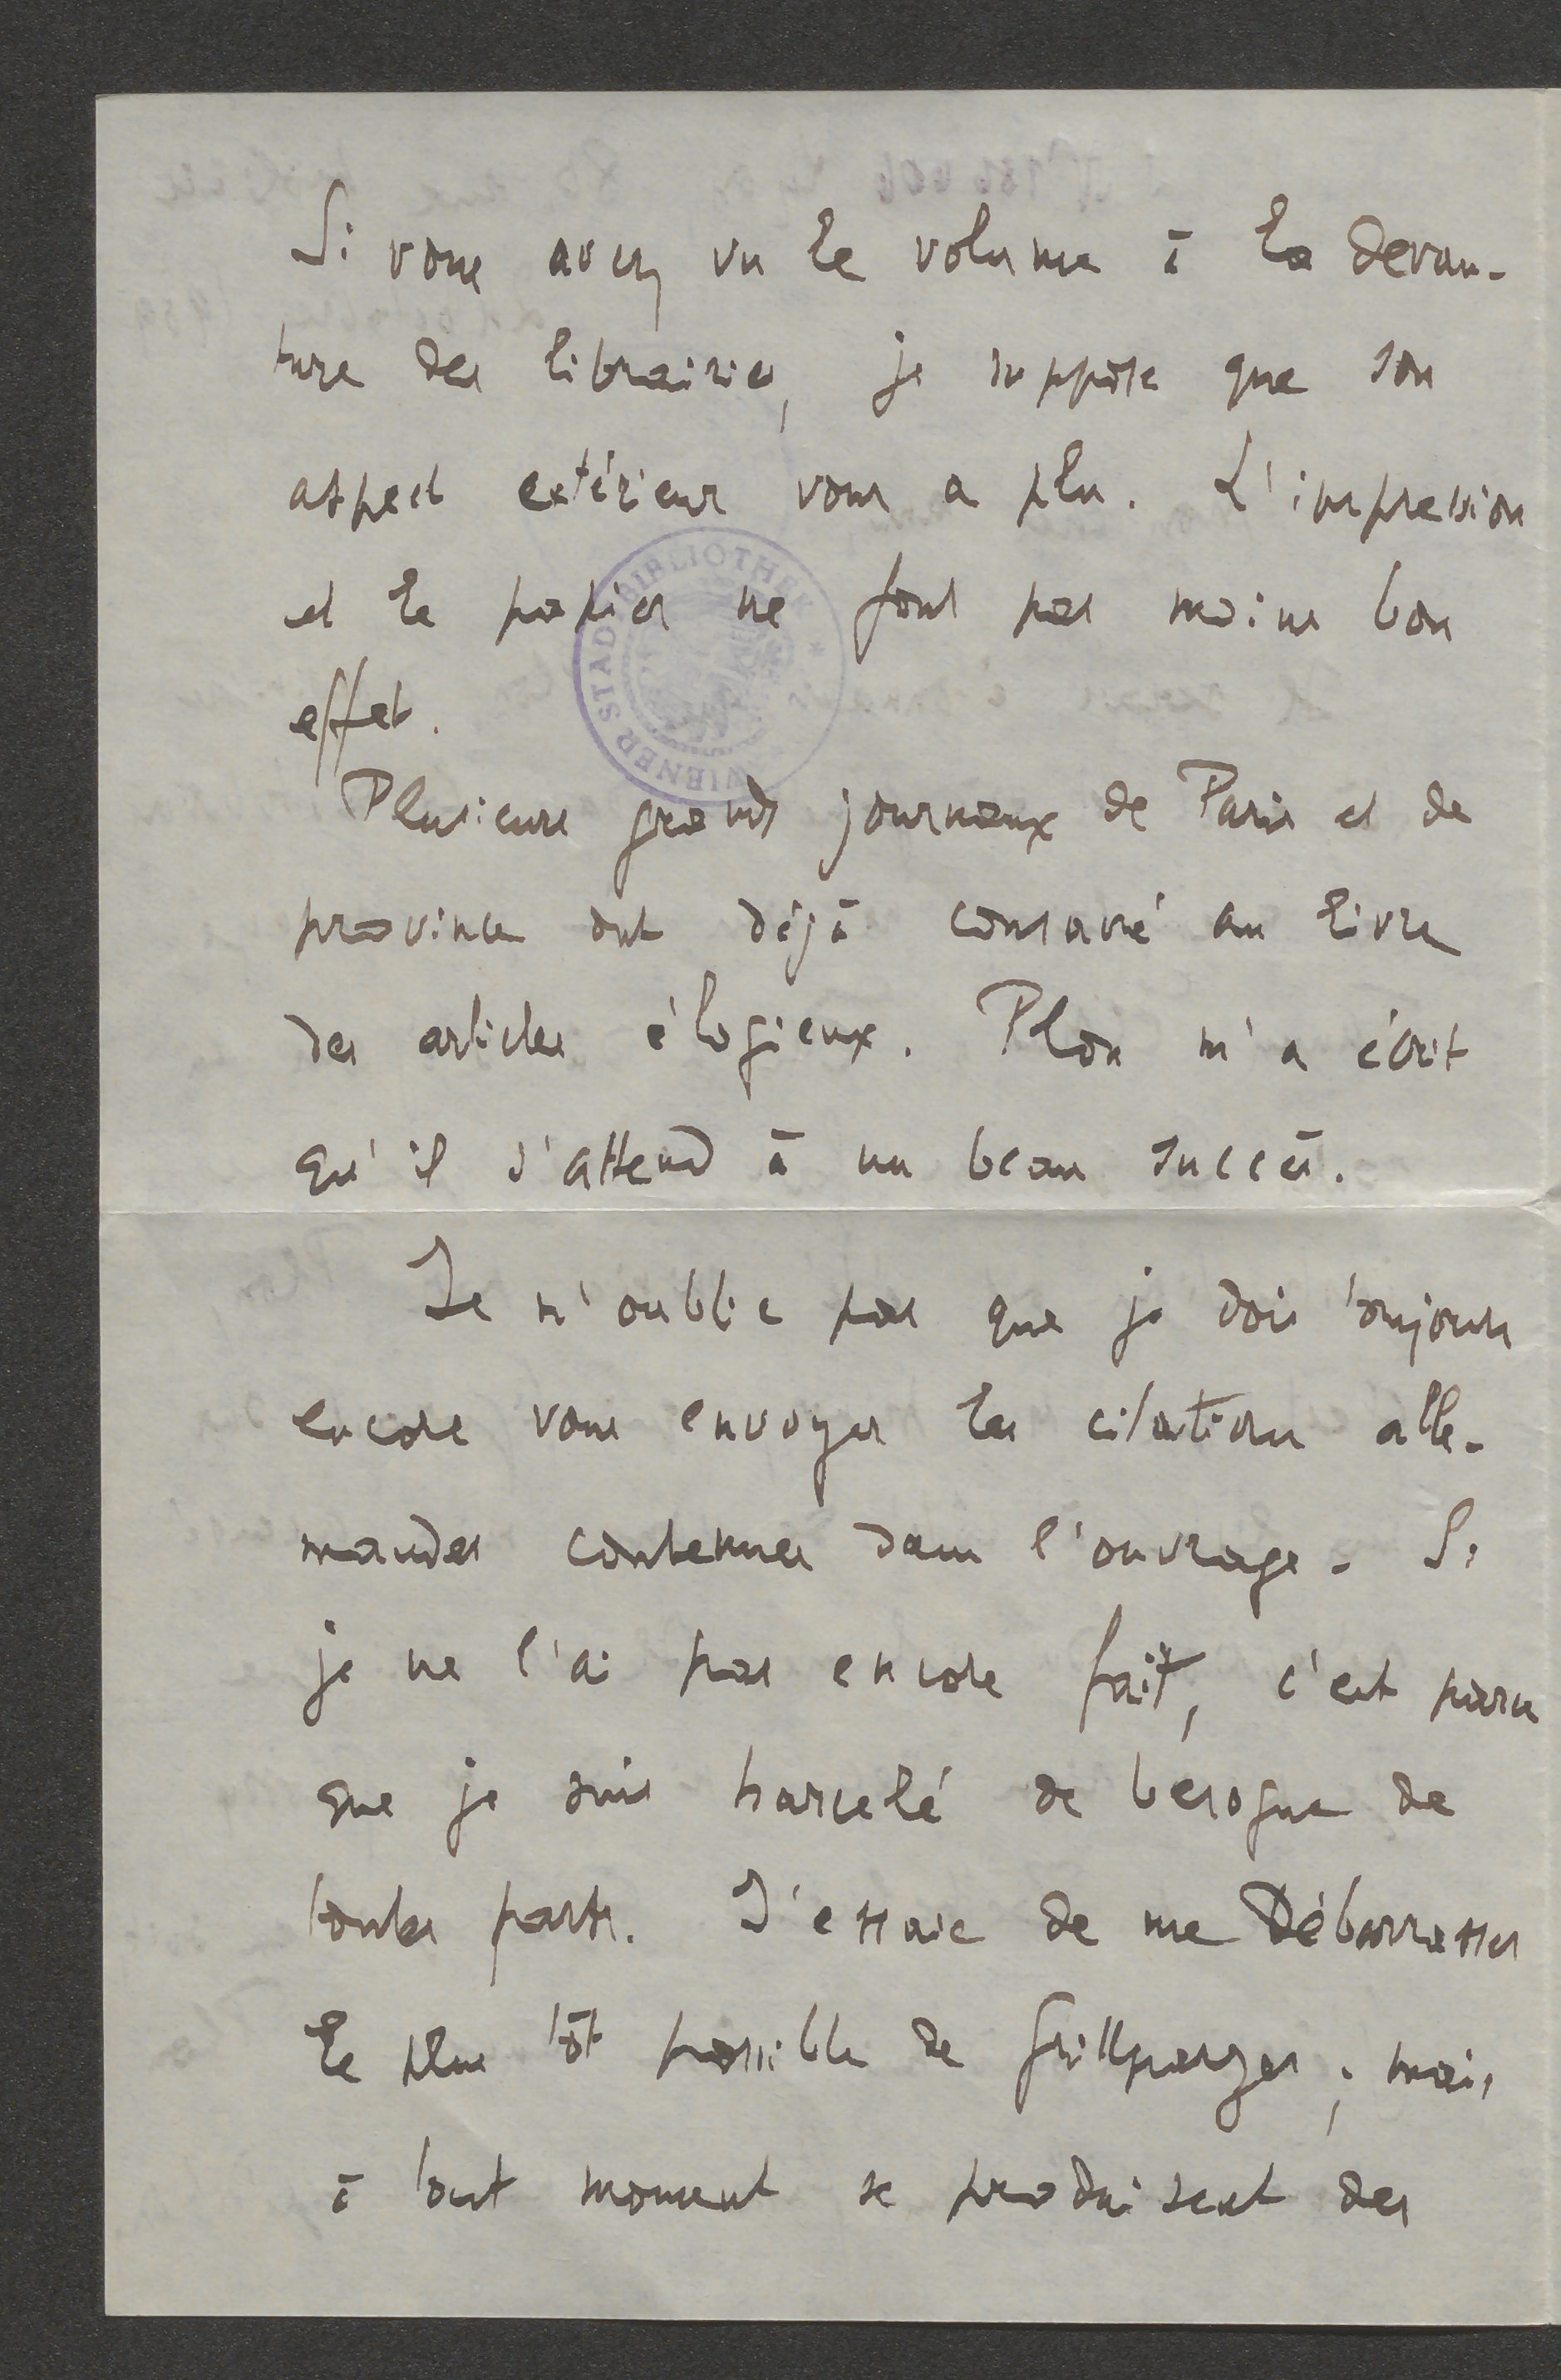 Si vous avez vu le volume à la devan-
ture des librairies, je suppose que son
aspect extérieur vous a plu. L'impression
et le papier ne font pas moins bon
effet.
WIENER STADTBIBLIOTHEK *
Plusieurs grands journaux de Paris et de
province ont déjà consacré au livre
des articles élogieux. Plon m'a écrit
qu'il s'attend à un beau succès.
Je n'oublie pas que je dois toujours
encore vous envoyer les citations alle-
mandes contenues dans l'ouvrage. Si
je ne l'ai pas encore fait, c'est parce
que je suis harcelé de besogne de
toutes parts. J'essaie de me débarrasser
le plus tôt possible de Grillparzer ; mais
à tout moment se produisent des